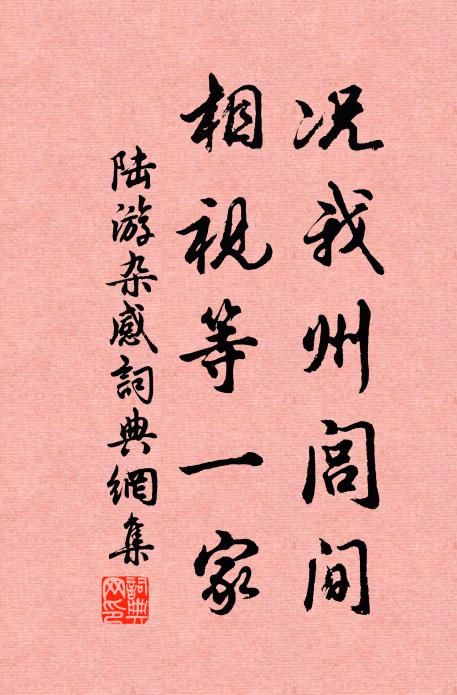 况我州闾间
相视等一家
陆游杂感词典網集
詞典网印